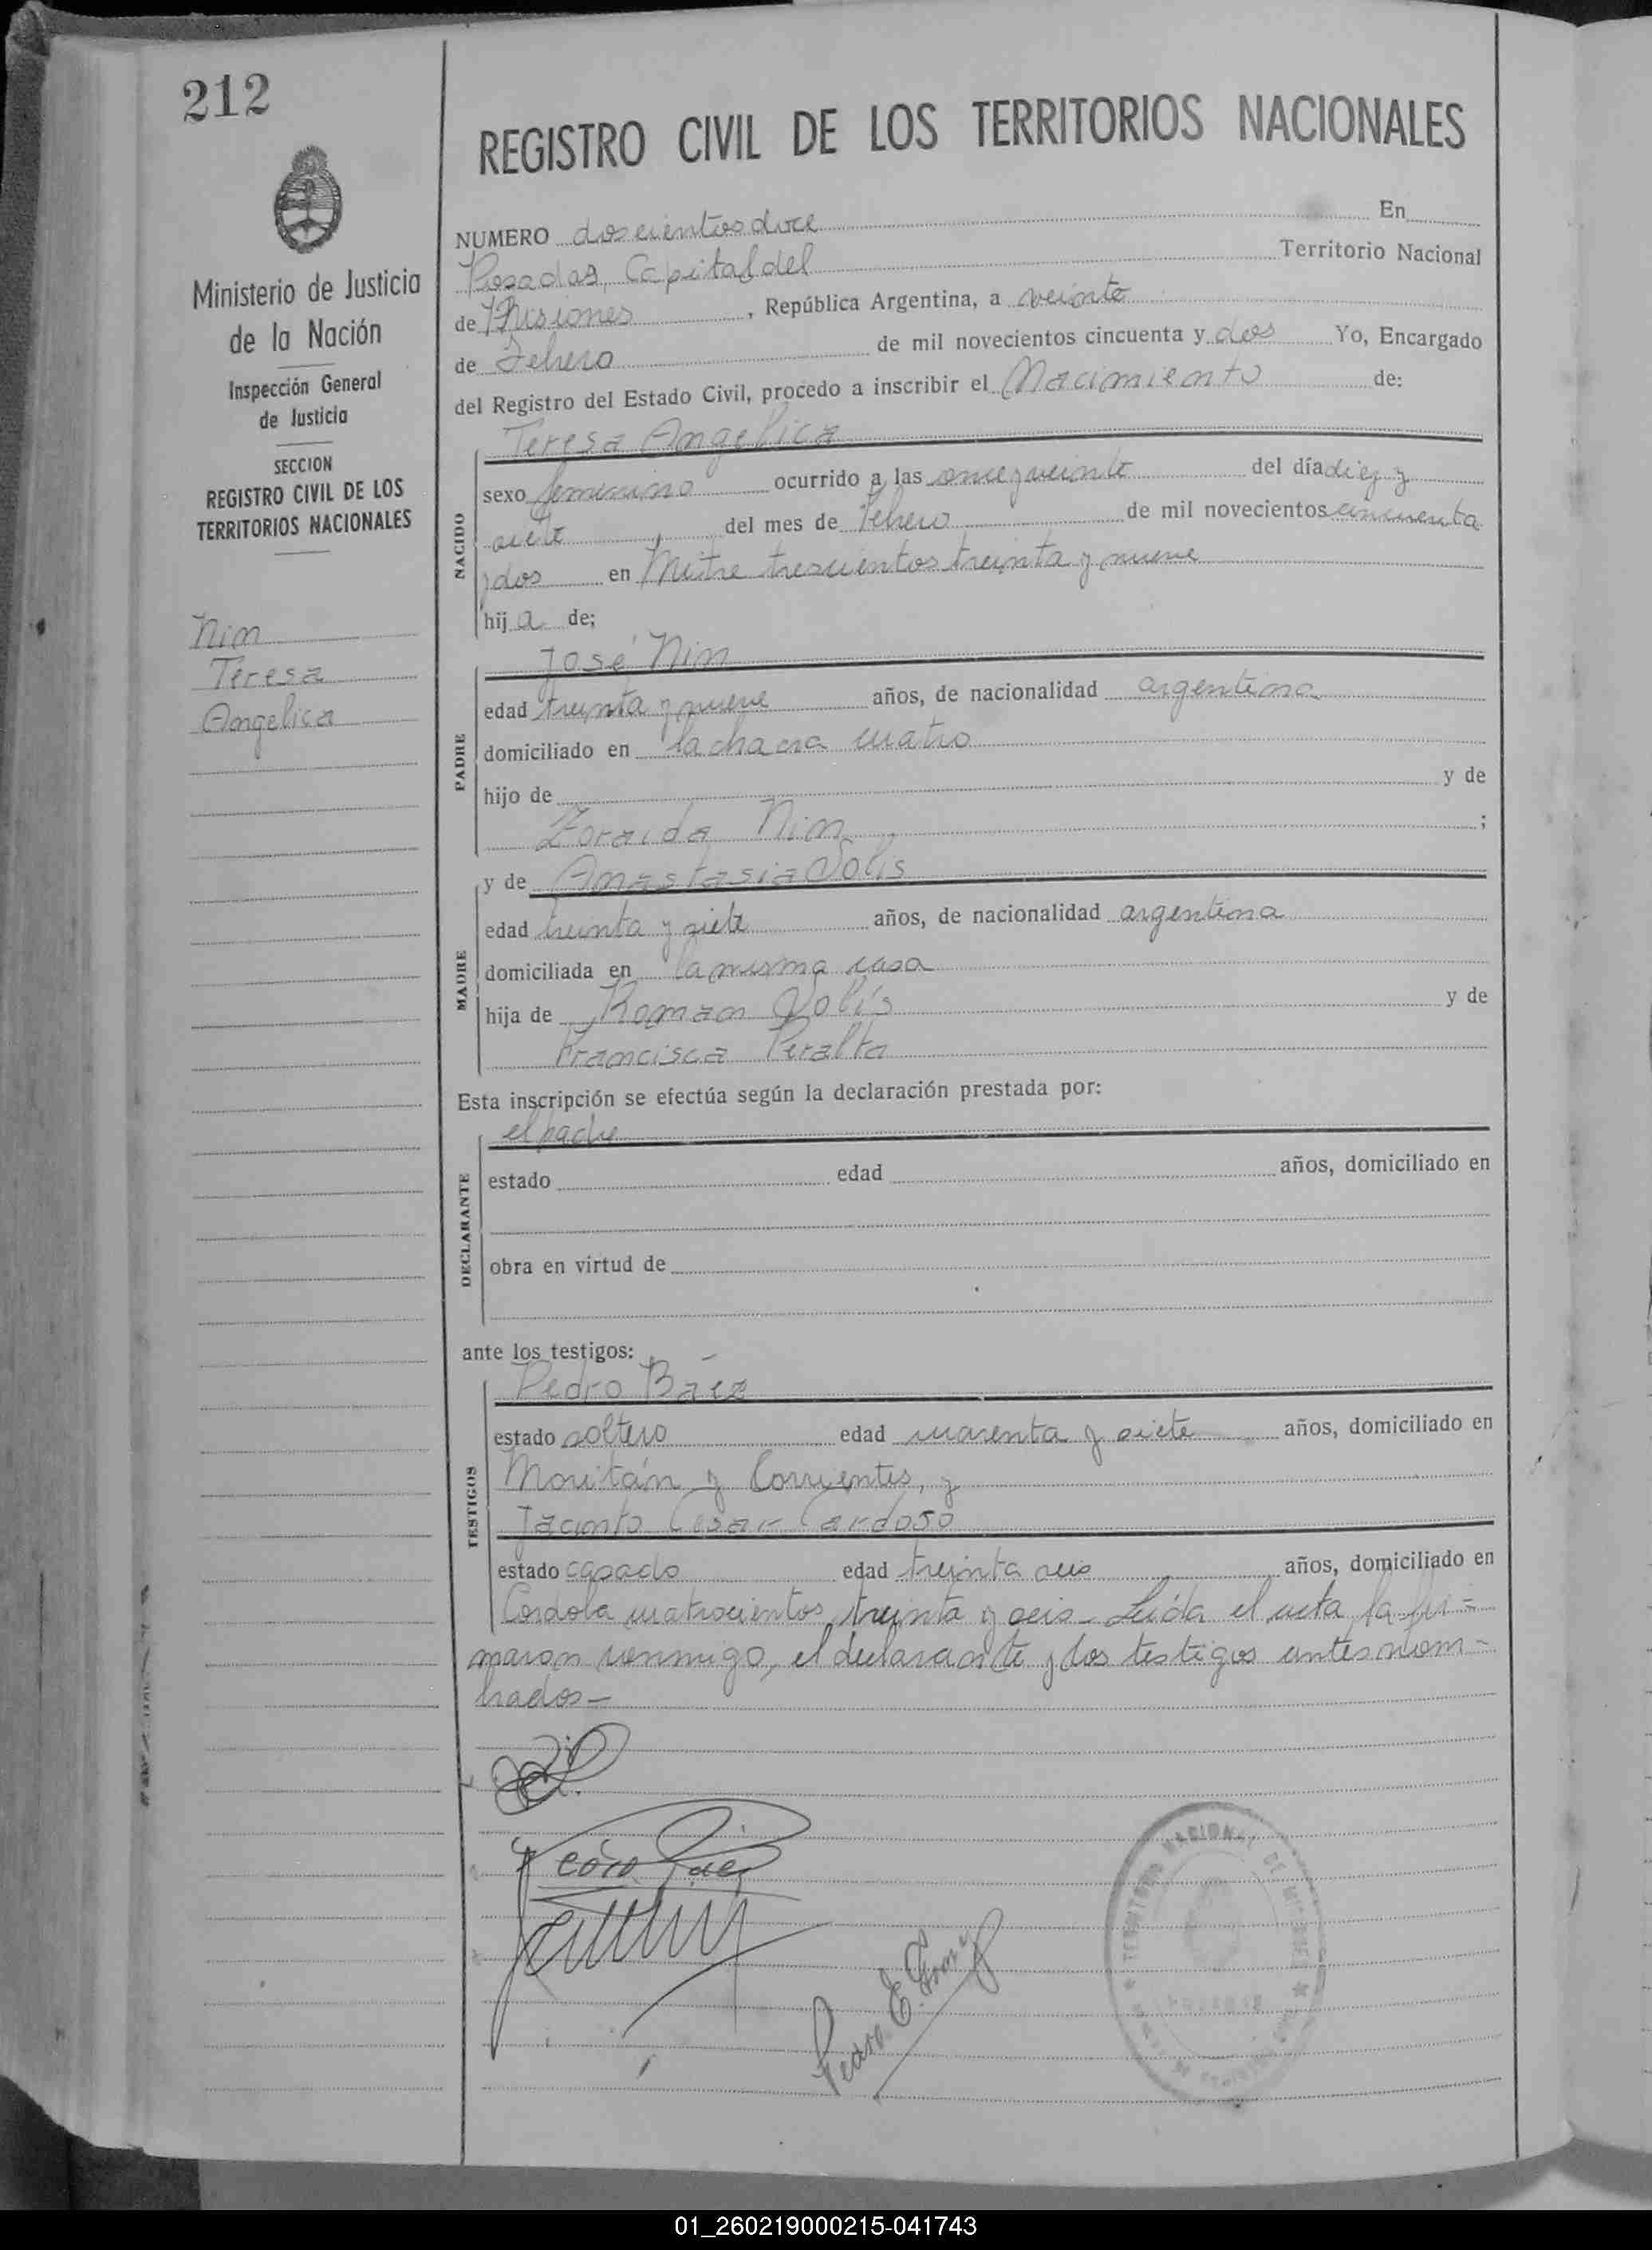 212
REGISTRO CIVIL DE LOS TERRITORIOS NACIONALES
Ministerio de Justicia
de la Nación
Inspección General
de Justicia
SECCION
REGISTRO CIVIL DE LOS
TERRITORIOS NACIONALES
Nim
Teresa
Angelica
NUMERO doscientos doce En
Posadas, Capital del Territorio Nacional
de Misiones, República Argentina, a veinte
de Febrero de mil novecientos cincuenta y dos Yo, Encargado
del Registro del Estado Civil, procedo a inscribir el Nacimiento de:
NACIDO
Teresa Angelica
sexo femenino ocurrido a las once y veinte del día diez y
siete, del mes de Febrero de mil novecientos cincuenta
y dos en Mitre trescientos treinta y nueve
hija de;
PADRE
José Nim
edad treinta y nueve años, de nacionalidad argentina
domiciliado en la chacra cuatro
hijo de y de
Zoraida Nim ;
MADRE
y de Anastasia Solís
edad treinta y siete años, de nacionalidad argentina
domiciliada en la misma casa
hija de Roman Solís y de
Francisca Peralta
Esta inscripción se efectúa según la declaración prestada por:
DECLARANTE
el padre
estado edad años, domiciliado en
obra en virtud de
ante los testigos:
TESTIGOS
Pedro Báez
estado soltero edad cuarenta y siete años, domiciliado en
Moritán y Corrientes, y
Jacinto Cesar Cardoso
estado casado edad treinta seis años, domiciliado en
Cordoba cuatrocientos treinta y seis - Leída el acta la fir=
maron conmigo, el declarante y los testigos antes nom-
brados -
Pedro Báez
Pedro E.
TERRITORIO NACIONAL DE MISIONES
01_260219000215-041743